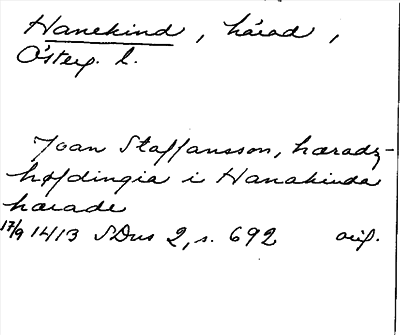 Hanekind, härad,
Österg. l.
Joan Staffansson, hæradz-
høfdingia i Hanakinda
hærade
17/9 1413 SDns 2, s. 692 orig.